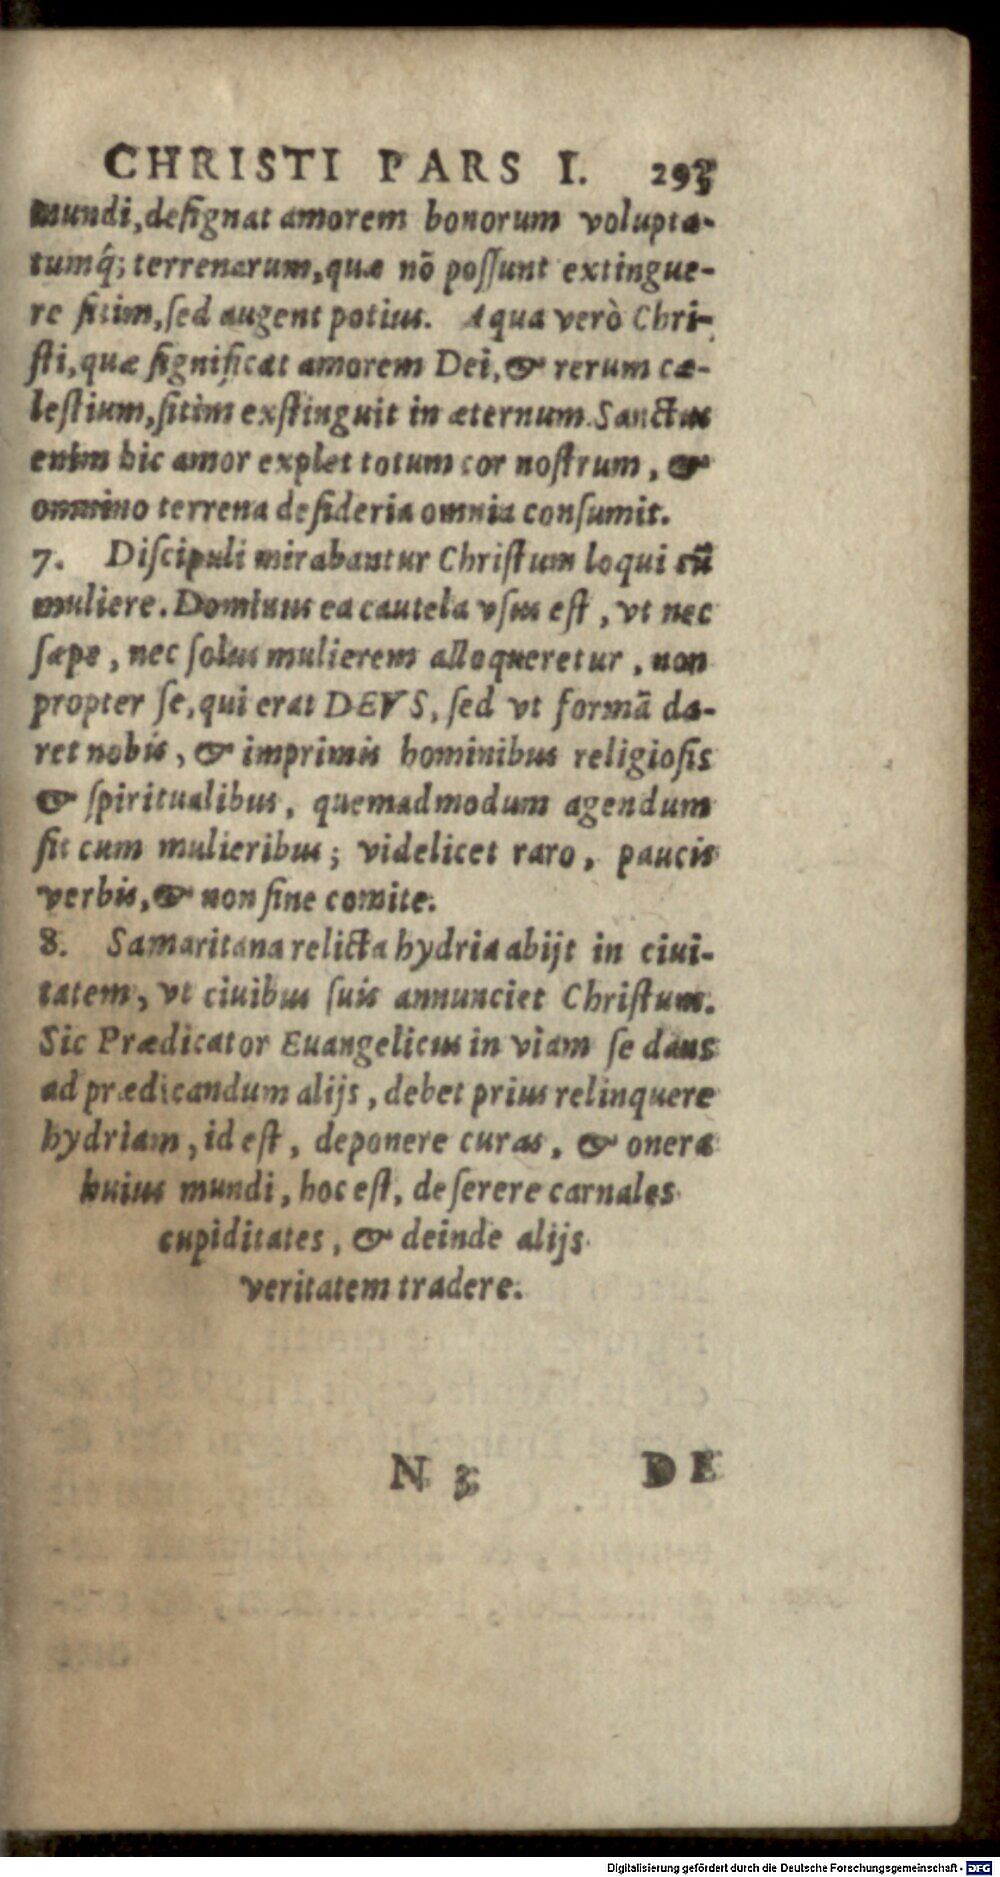 CHRISTI PARS I. 293
mundi, deſignat amorem bonorum volupta-
tumq́; terrenarum, quæ nō poſſunt extingue-
re ſitim, ſed augent potius. Aqua verò Chri-
ſti, quæ ſignificat amorem Dei, & rerum cæ-
leſtium, ſitim exſtinguit in æternum. Sanctus
enim hic amor explet totum cor noſtrum, &
omnino terrena deſideria omnia conſumit.
7. Diſcipuli mirabantur Chriſtum loqui cū
muliere. Dominus ea cautela vſus eſt, vt nec
ſæpe, nec ſolus mulierem alloqueretur, non
propter ſe, qui erat DEVS, ſed vt formā da-
ret nobis, & imprimis hominibus religioſis
& ſpiritualibus, quemadmodum agendum
ſit cum mulieribus; videlicet raro, paucis
verbis, & non ſine comite.
8. Samaritana relicta hydria abijt in ciui-
tatem, vt ciuibus ſuis annunciet Chriſtum.
Sic Prædicator Euangelicus in viam ſe dans
ad prædicandum alijs, debet prius relinquere
hydriam, id eſt, deponere curas, & onera
huius mundi, hoc eſt, deſerere carnales
cupiditates, & deinde alijs
veritatem tradere.
N 3 DE
Digitalisierung gefördert durch die Deutsche Forschungsgemeinschaft - DFG